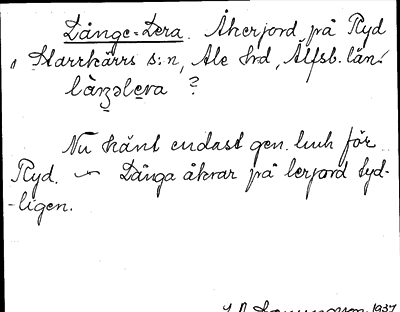 Långe-Lera. Åkerjord på Ryd
i Starrkärrs s:n, Ale hd, Älfsb. län.
lànꝫəlera ?
Nu känt endast gen. luh för
Ryd. ~ Långa åkrar på lerjord tyd-
-ligen.
1937